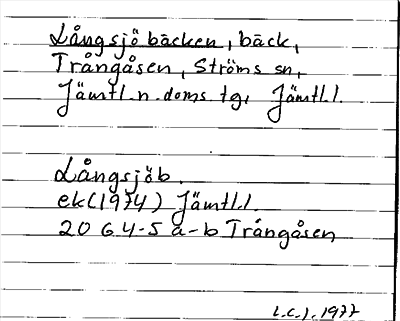 Långsjöbäcken, bäck,
Trångåsen, Ströms sn,
Jämtl. n. doms. tg, Jämtl.l.
Långsjöb.
ek (1974) Jämtl.l.
20 G 4-5 a-b Trångåsen
L.C.J. 1977